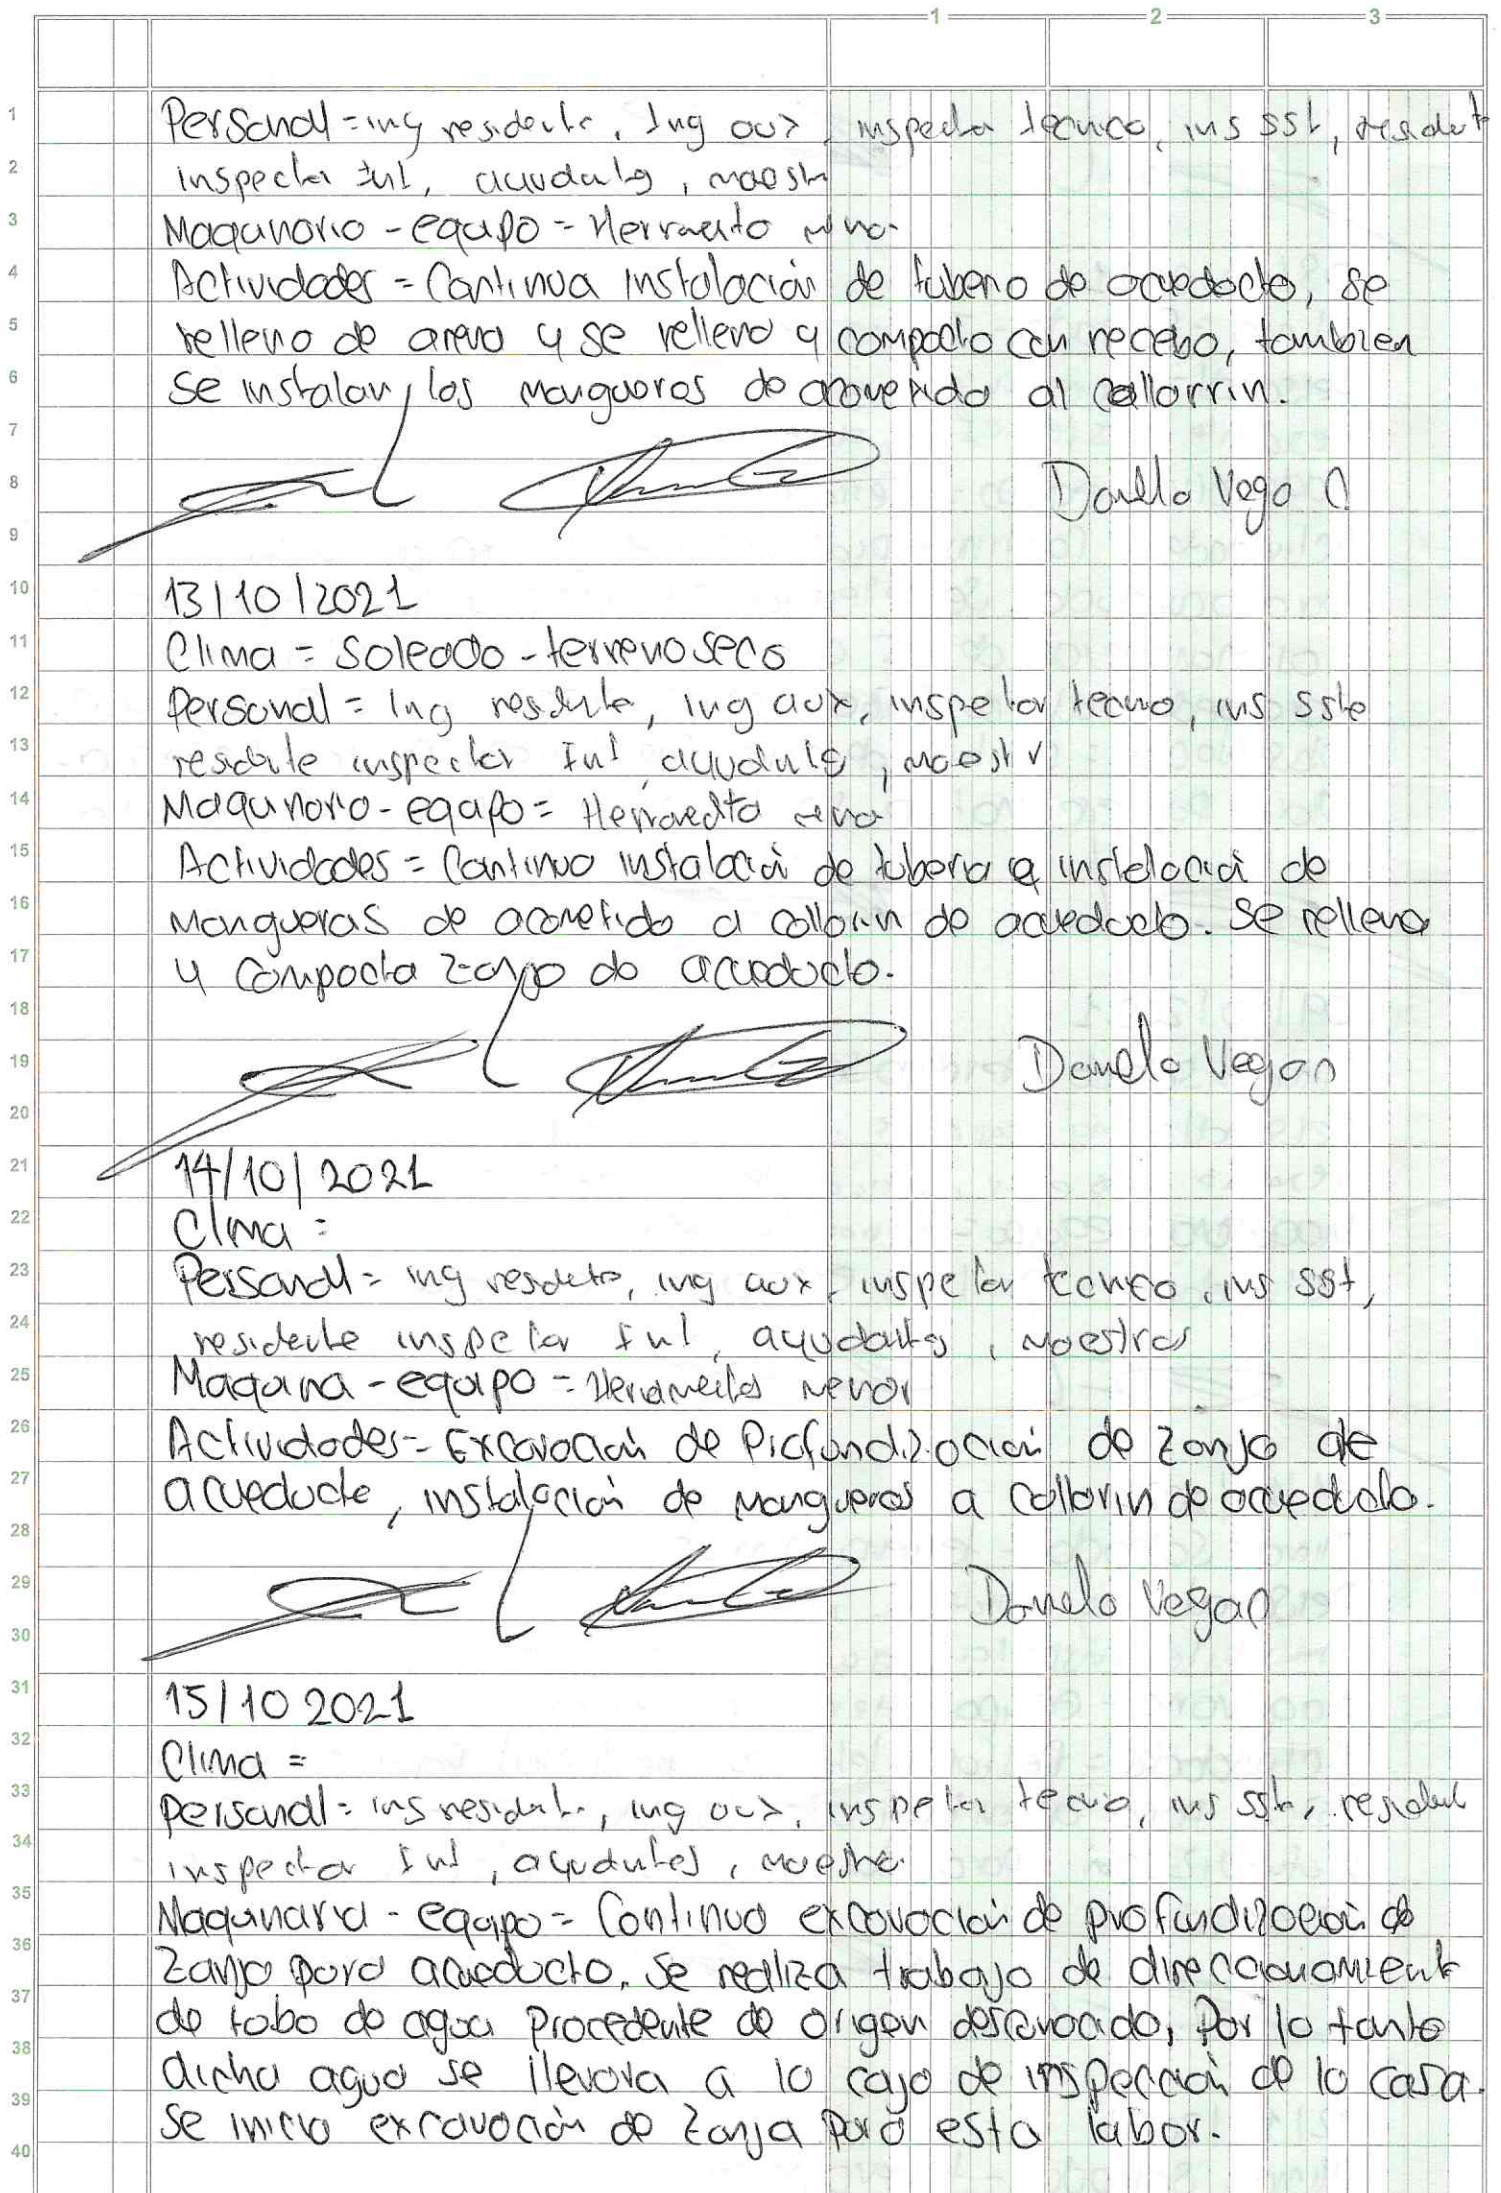 1 2 3
1 Personal = ing residente, Ing aux, inspector tecnico, ins SST, resident
2 inspector Int, ayudante, maestr
3 Maquinaria - equipo = Herramienta menor
4 Actividades = Continua instalación de tuberia de acueducto, se
5 relleno de arena y se relleno y compacto con recebo, tambien
6 se instalan los mangueras de acometida al collarrin.
7
8 Danilo Vega C
9
10 13/10/2021
11 Clima = Soleado - terreno seco
12 Personal = Ing residente, ing aux, inspector tecnico, ins sste
13 residente inspector Int ayudante, maestr
14 Maquinaria - equipo = Herramienta menor
15 Actividades = Continuo instalación de tuberia e instalación de
16 Mangueras de acometida a collorin de acueducto. Se rellena
17 y compacta zanja de acueducto.
18
19 Danilo Vega C
20
21 14/10/2021
22 Clima =
23 Personal = ing residente, ing aux, inspector tecnico, ins SST,
24 residente inspector Int, ayudantes, maestros
25 Maquina - equipo = Herramienta menor
26 Actividades = Excavación de Profundización de zanja de
27 acueducto, instalación de mangueras a collorin de acueducto.
28
29 Danilo Vega C
30
31 15/10 2021
32 Clima =
33 Personal = ing residente, ing aux, inspector tecnico, ins sst, resident
34 inspector Int, ayudantes, maestro.
35 Maquinaria - equipo = Continuo excavación de profundización de
36 Zanja para acueducto. Se realiza trabajo de direccionamiento
37 de tubo de agua procedente de origen desconocido, Por lo tanto
38 dicha agua se llevara a la caja de inspección de la casa.
39 Se inicia excavación de zanja para esta labor.
40